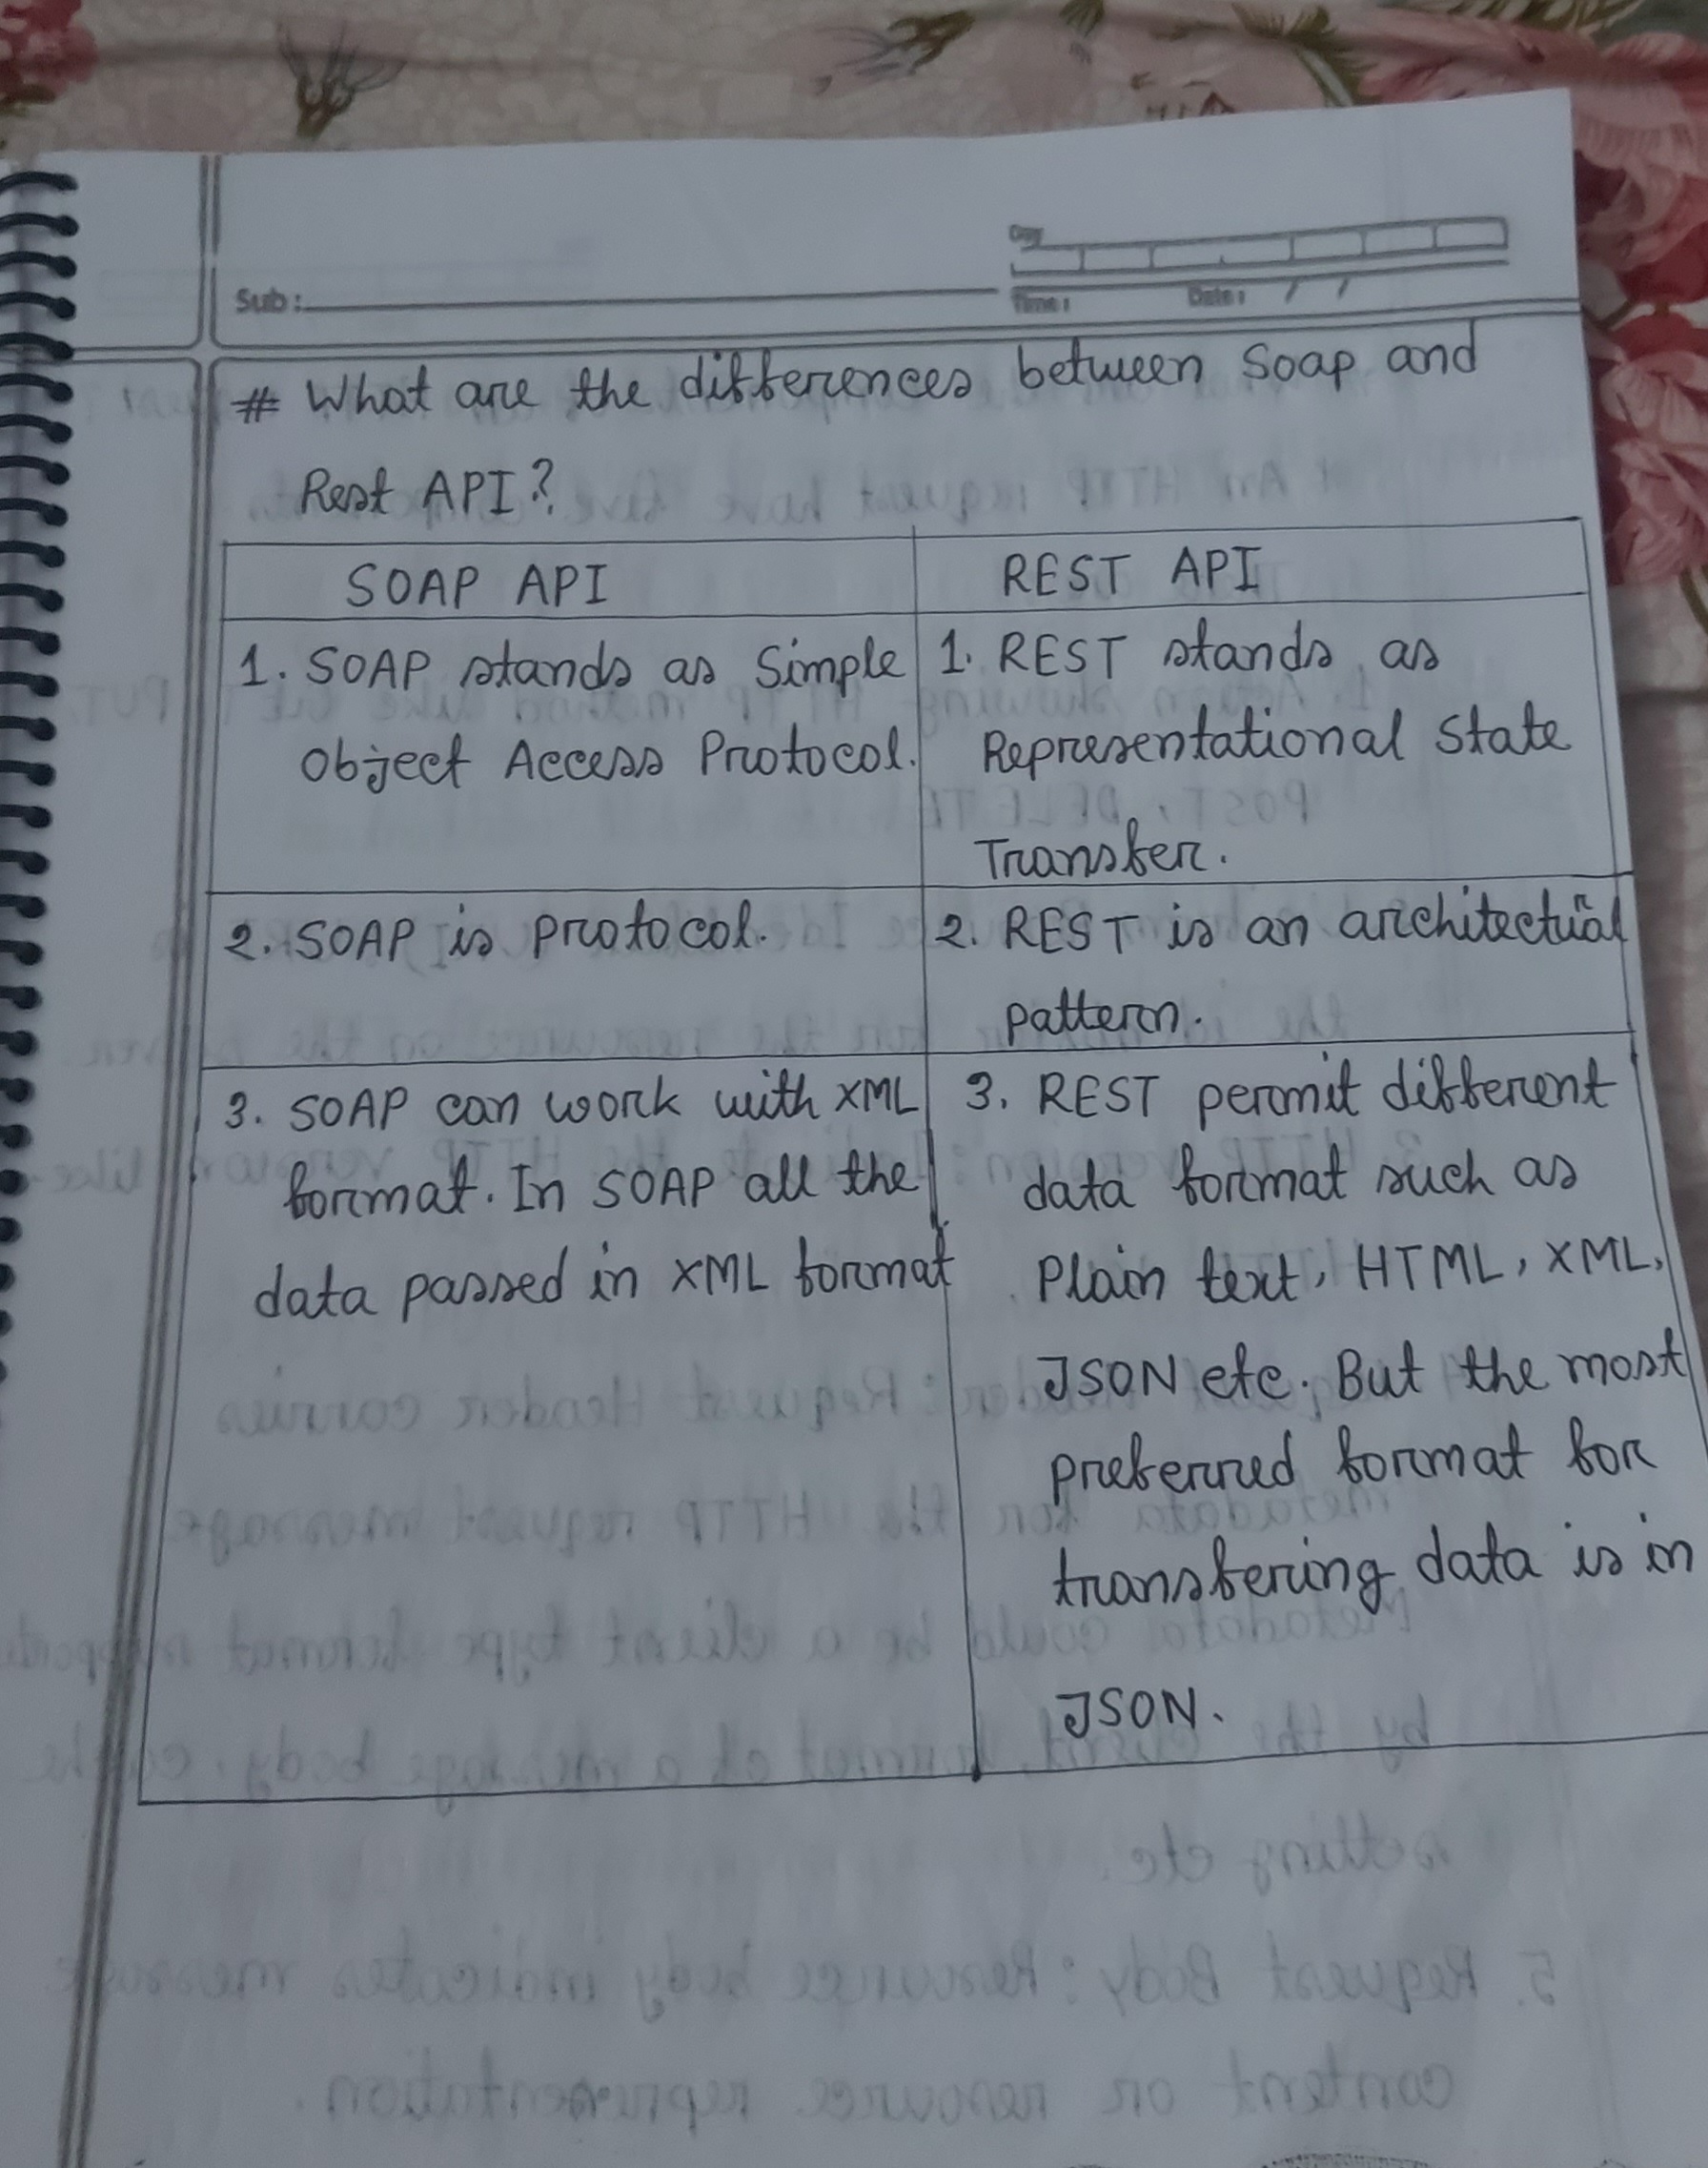 Copy
Sub:
Time: Date: / /
# What are the differences between Soap and
Rest API?
SOAP API
REST API
1. SOAP stands as Simple
Object Access Protocol.
1. REST stands as
Representational State
Transfer.
2. SOAP is protocol.
2. REST is an architectual
pattern.
3. SOAP can work with XML
format. In SOAP all the
data passed in XML format
3. REST permit different
data format such as
Plain text, HTML, XML,
JSON etc. But the most
preferred format for
transfering data is in
JSON.